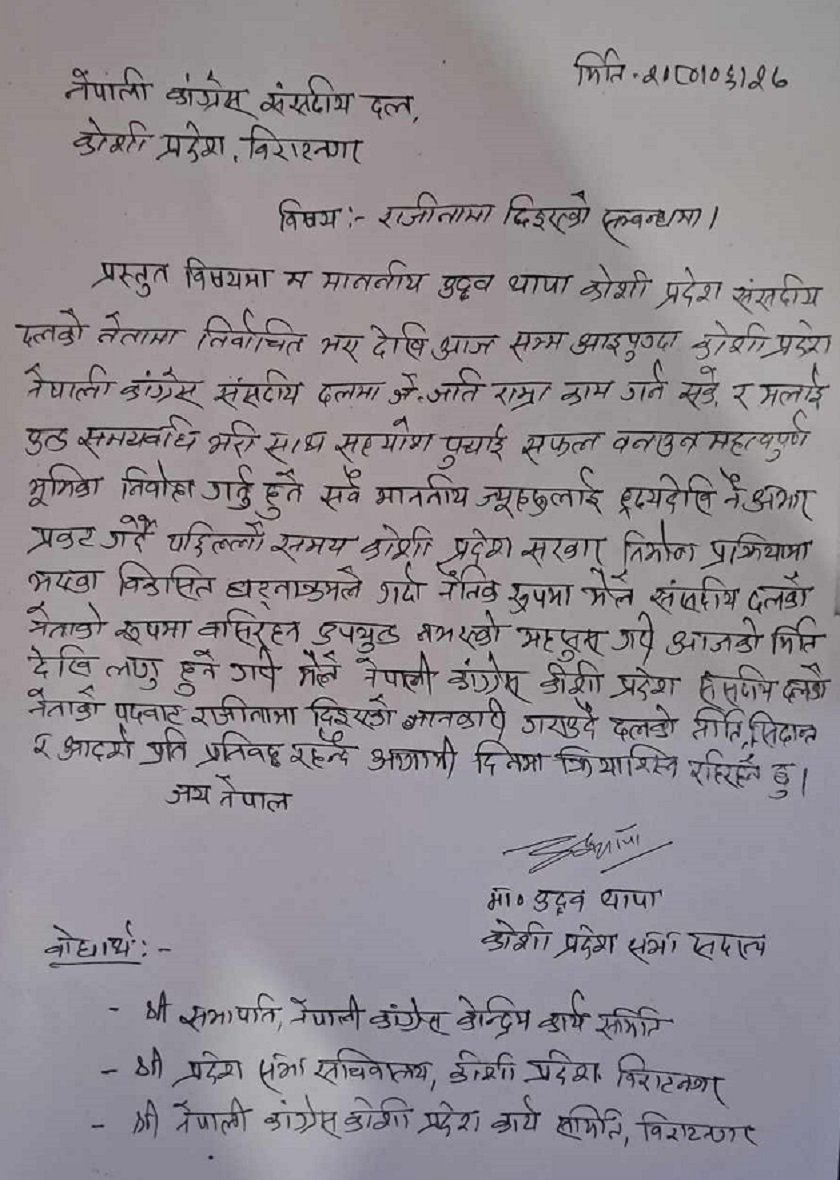 मिति - २०८०।०६।२७
नेपाली कांग्रेस संसदीय दल,
कोशी प्रदेश, विराटनगर
विषय :- राजीनामा दिइएको सम्वन्धमा ।
प्रस्तुत विषयमा म माननीय उद्धव थापा कोशी प्रदेश संसदीय
दलको नेतामा निर्वाचित भए देखि आज सम्म आइपुग्दा कोशी प्रदेश
नेपाली कांग्रेस संसदीय दलमा जे-जति राम्रा काम गर्न सकें, र मलाई
उक्त समयावधि भरी साथ सहयोग पुर्‍याई सफल वनाउन महत्वपुर्ण
भूमिका निर्वाह गर्नु हुने सवै माननीय ज्यूहरुलाई हृदयदेखि नै आभार
प्रकट गर्दै पछिल्लो समय कोशी प्रदेश सरकार निर्माण प्रक्रियामा
भएका विकसित घटनाक्रमले गर्दा नैतिक रुपमा मैले संसदीय दलको
नेताको रूपमा वसिरहन उपयुक्त नभएको महसुस गरी आजको मिति
देखि लागु हुने गरी मैले नेपाली कांग्रेस कोशी प्रदेश संसदीय दलको
नेताको पदवाट राजीनामा दिइएको जानकारी गराउदै दलको नीति, सिद्धान्त
र आदर्श प्रति प्रतिवद्ध रहन्दै आगामी दिनमा क्रियाशिल रहिरहने छु ।
जय नेपाल
मा० उद्धव थापा
कोशी प्रदेश सभा सदस्य
वोधार्थ :-
- श्री सभापति, नेपाली कांग्रेस केन्द्रिय कार्य समिति
- श्री प्रदेश सभा सचिवालय, कोशी प्रदेश विराटनगर
- श्री नेपाली कांग्रेस कोशी प्रदेश कार्य समिति, विराटनगर